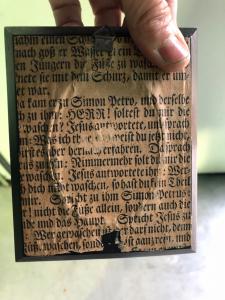 nahm einen Schurz
nach goß er Wasser
en Jüngern die Füße zu wasch
nete sie mit dem Schurz, damit er um
et war.
a kam er zu Simon Petro, und derselbe
ch zu ihm: HERR! solltest du mir die
waschen? Jesus antwortete, und sprach
m: Was ich das weißt du jetzt nicht
erfahren. Da sprach
zu ihm: Nimmermehr sollt du mir die
waschen. Jesus antwortete ihm: Wer
h dich nicht waschen, so hast du kein Theil
mir. Spricht zu ihm Simon Petrus
! nicht die Füße allein, sondern auch die
nde und das Haupt. Spricht Jesus zu
Wer gewaschen ist, der darf nicht, denn
Füß. waschen, sonde ist ganz rein, und